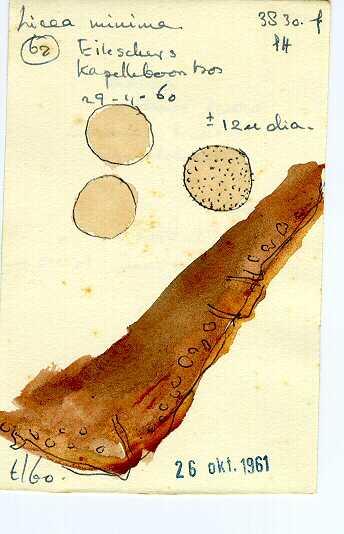 Licea minima 3830. f
62 Eileschers ft
Kapelleboon bos
29-4-60
± 12 u dia.
t/60.
26 okt. 1961